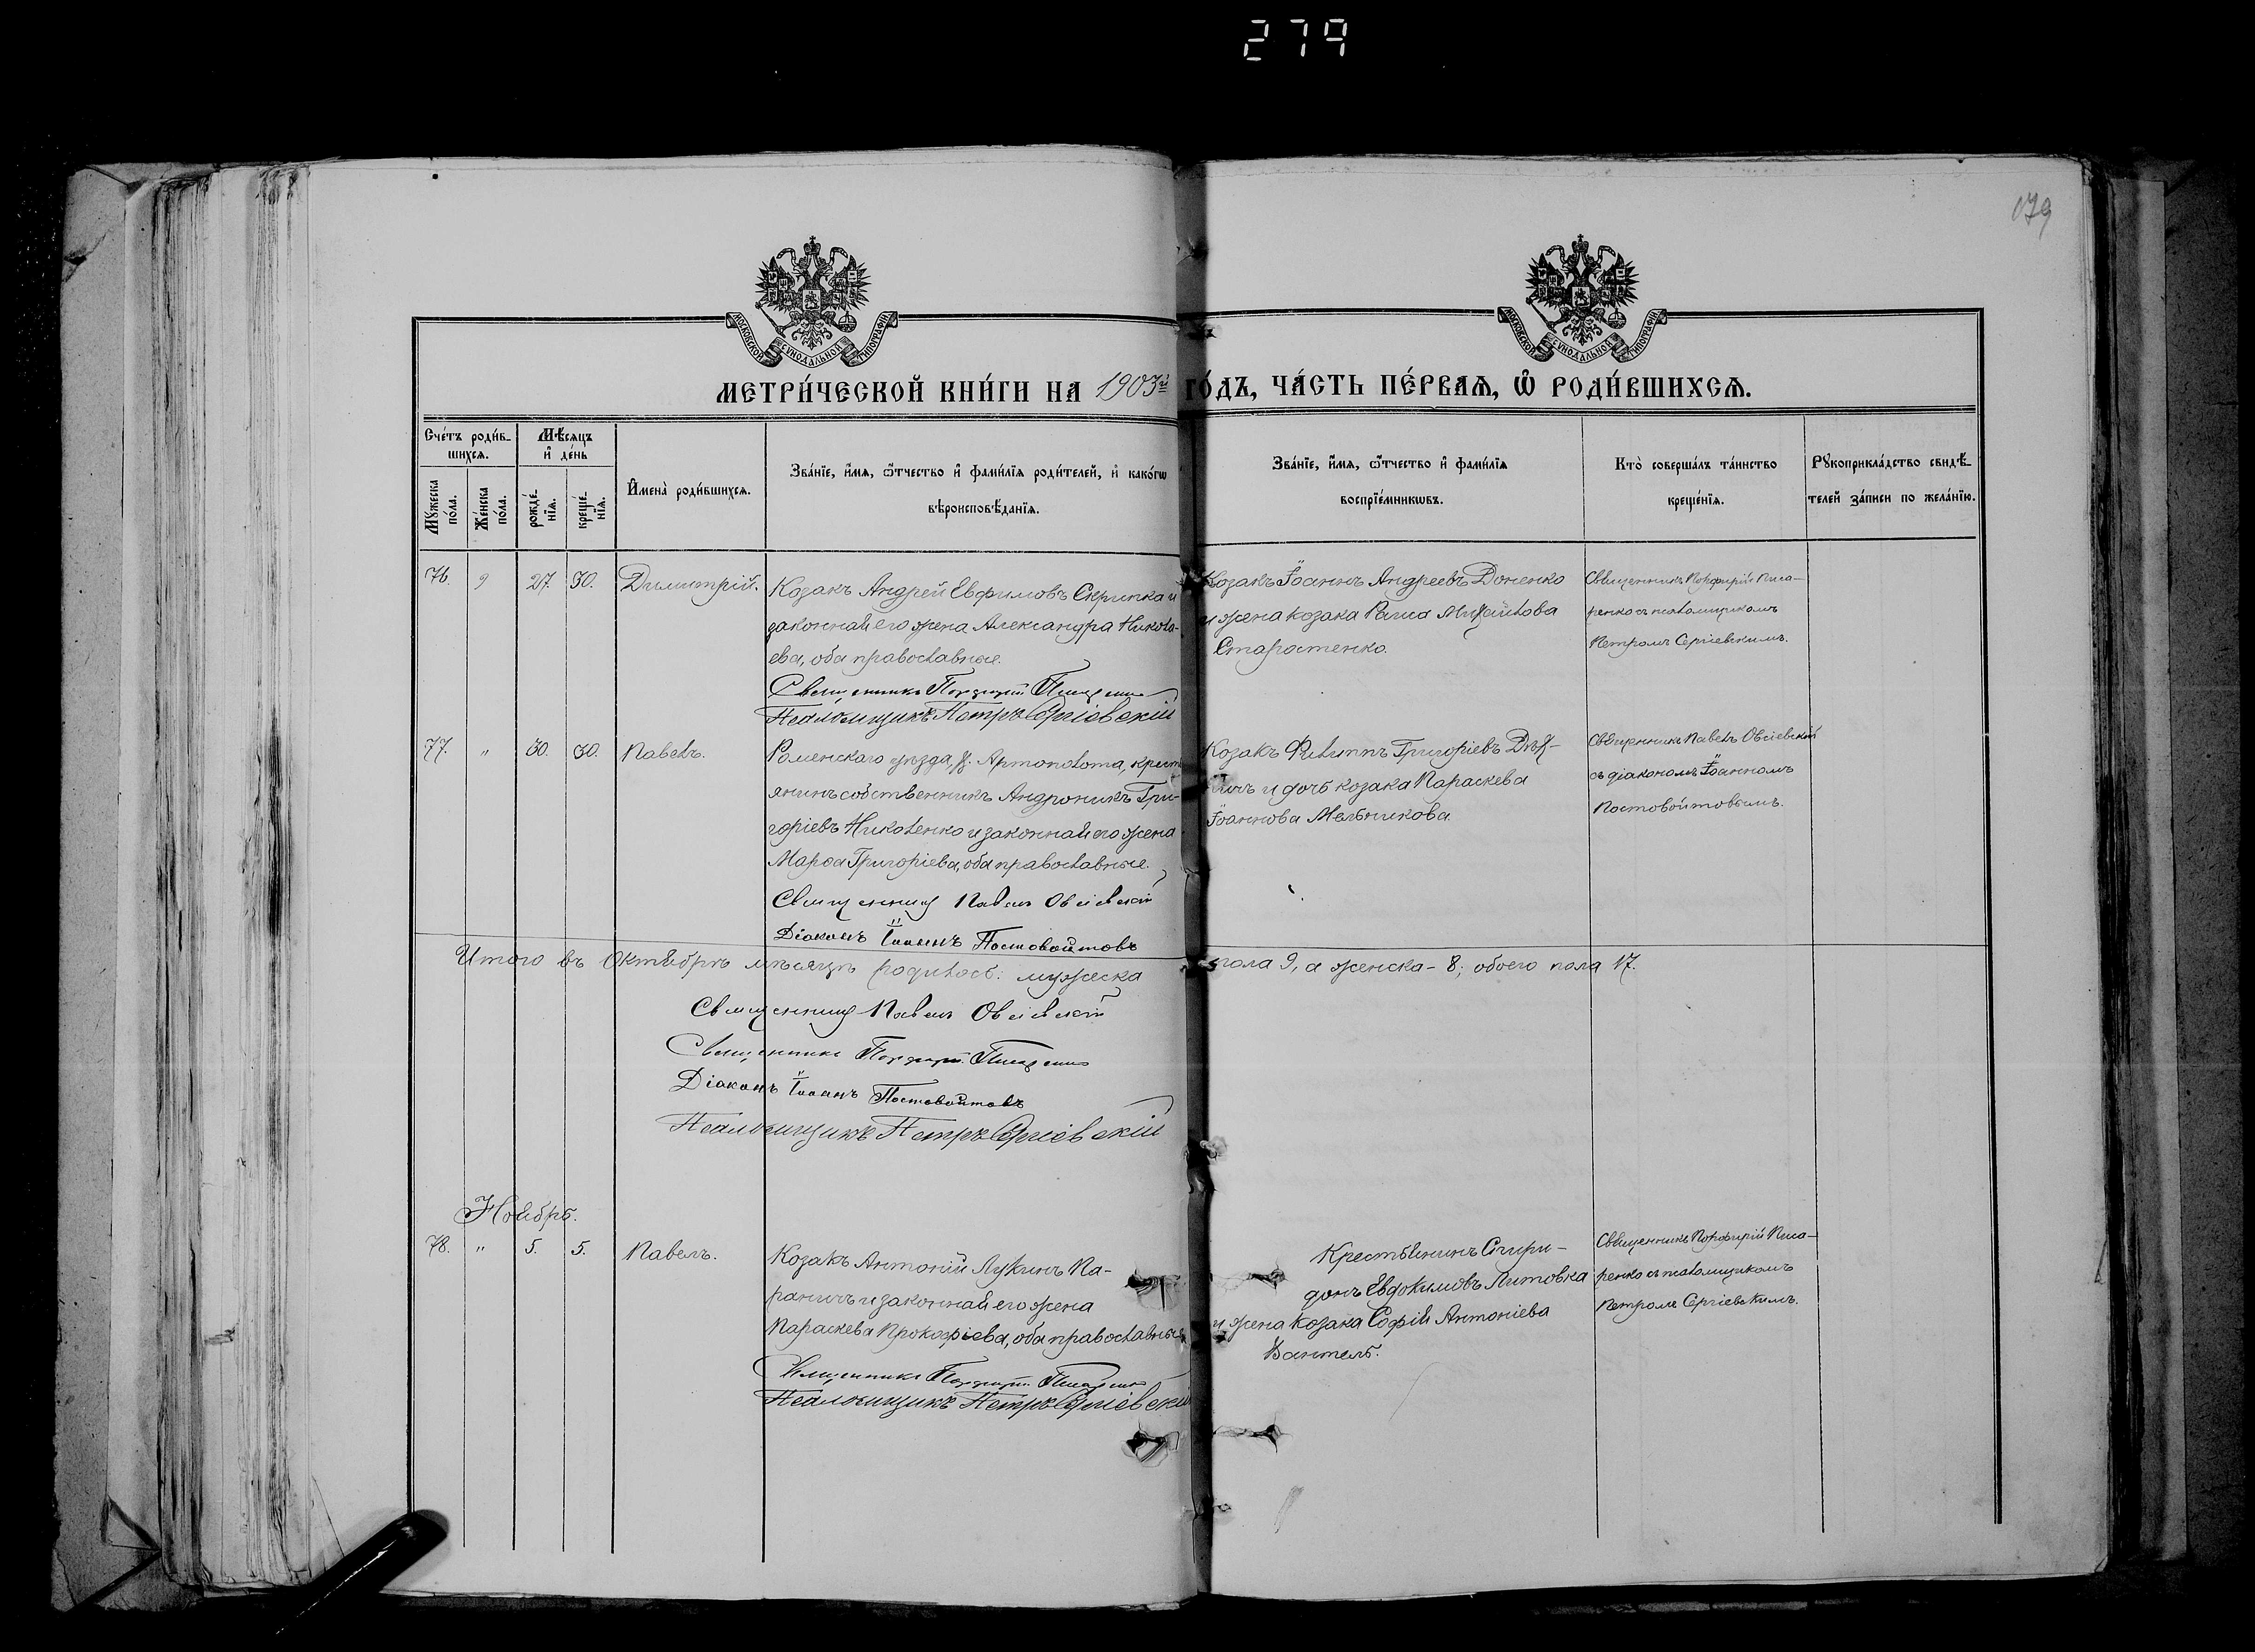 279
179
МОСКОВСКОЙ СѴНОДАЛЬНОЙ ТИПОГРАФІИ
МОСКОВСКОЙ СѴНОДАЛЬНОЙ ТИПОГРАФІИ
МЕТРИ́ЧЕСКОЙ КНИ́ГИ НА 1903й ГО́ДЪ, ЧА́СТЬ ПЕ́РВАѦ, Ѡ҆ РОДИ́ВШИХСѦ.
Сче́тъ роди́в-
шихсѧ.
Мѣ́сѧцъ
и҆ де́нь
Мꙋ́жеска
по́ла.
Же́нска
по́ла.
рожде́-
нїѧ.
креще́-
нїѧ.
И҆мена̀ роди́вшихсѧ.
Зва́нїе, и҆́мѧ, ѻ҆́тчество и҆ фами́лїѧ роди́телей, и҆ како́гѡ
вѣроисповѣ́данїѧ.
Зва́нїе, и҆́мѧ, ѻ҆́тчество и҆ фами́лїѧ
воспрїе́мникѡвъ.
Кто̀ соверша́лъ та́инство
креще́нїѧ.
Рꙋкоприкла́дство свидѣ́-
телей за́писи по жела́нїю.
76. 9 27. 30. Димитрій.
Козакъ Андрей Евфимовъ Скрипка и
законная его жена Александра Никола-
ева, оба православные.
Священникъ Порфирій Писаренко
Псаломщикъ Петръ Сергіевскій
Козакъ Іоаннъ Андреевъ Доненко
и жена козака Раиса Михайлова
Старостенко.
Священникъ Порфирій Писа-
ренко съ псаломщикомъ
Петромъ Сергіевскимъ.
77. " 30. 30. Павелъ.
Роменскаго уѣзда, д. Артополота, крест
янинъ собственникъ Андроникъ Гри-
горіевъ Николенко и законная его жена
Марѳа Григоріева, оба православные.
Священникъ Павелъ Овсіевскій
Діаконъ Іоаннъ Постовойтовъ
Козакъ Филиппъ Григоріевъ
и дочь козака Параскева
Іоаннова Мельникова.
Священникъ Павелъ Овсіевскій
съ діакономъ Іоанномъ
Постовойтовымъ.
Итого въ Октябрѣ мѣсяцѣ родилось: мужеска пола 9, а женска - 8; обоего пола 17.
Священникъ Павелъ Овсіевскій
Священникъ Порфирій Писаренко
Діаконъ Іоаннъ Постовойтовъ
Псаломщикъ Петръ Сергіевскій
Ноябрь.
78. " 5. 5. Павелъ.
Козакъ Антоній Лукинъ Па-
раничъ и законная его жена
Параскева Прокофіева, оба православные
Священникъ Порфирій Писаренко
Псаломщикъ Петръ Сергіевскій
Крестьянинъ Спири-
донъ Евдокимовъ Литовка
и жена козака Софія Антоніева
Вантелъ.
Священникъ Порфирій Писа-
ренко съ псаломщикомъ
Петромъ Сергіевскимъ.